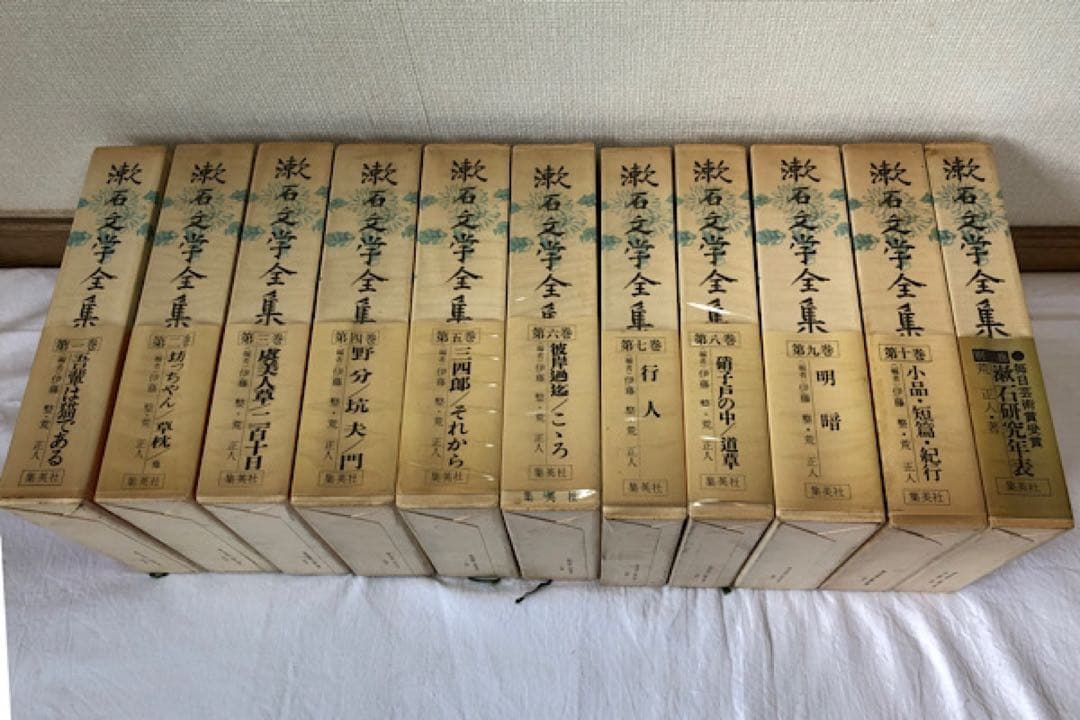 漱石文学全集
第一巻
吾輩は猫である
編者 伊藤 整・荒 正人
集英社
漱石文学全集
第二巻
坊っちゃん/草枕
編者 伊藤 整・荒 正人
集英社
漱石文学全集
第三巻
虞美人草/二百十日
編者 伊藤 整・荒 正人
集英社
漱石文学全集
第四巻
野分/坑夫/門
編者 伊藤 整・荒 正人
集英社
漱石文学全集
第五巻
三四郎/それから
編者 伊藤 整・荒 正人
集英社
漱石文学全集
第六巻
彼岸過迄/こゝろ
編者 伊藤 整・荒 正人
集英社
漱石文学全集
第七巻
行人
編者 伊藤 整・荒 正人
集英社
漱石文学全集
第八巻
硝子戸の中/道草
編者 伊藤 整・荒 正人
集英社
漱石文学全集
第九巻
明暗
編者 伊藤 整・荒 正人
集英社
漱石文学全集
第十巻
小品・短篇・紀行
編者 伊藤 整・荒 正人
集英社
漱石文学全集
別巻
●毎日芸術賞受賞
漱石研究年表
荒 正人著
集英社